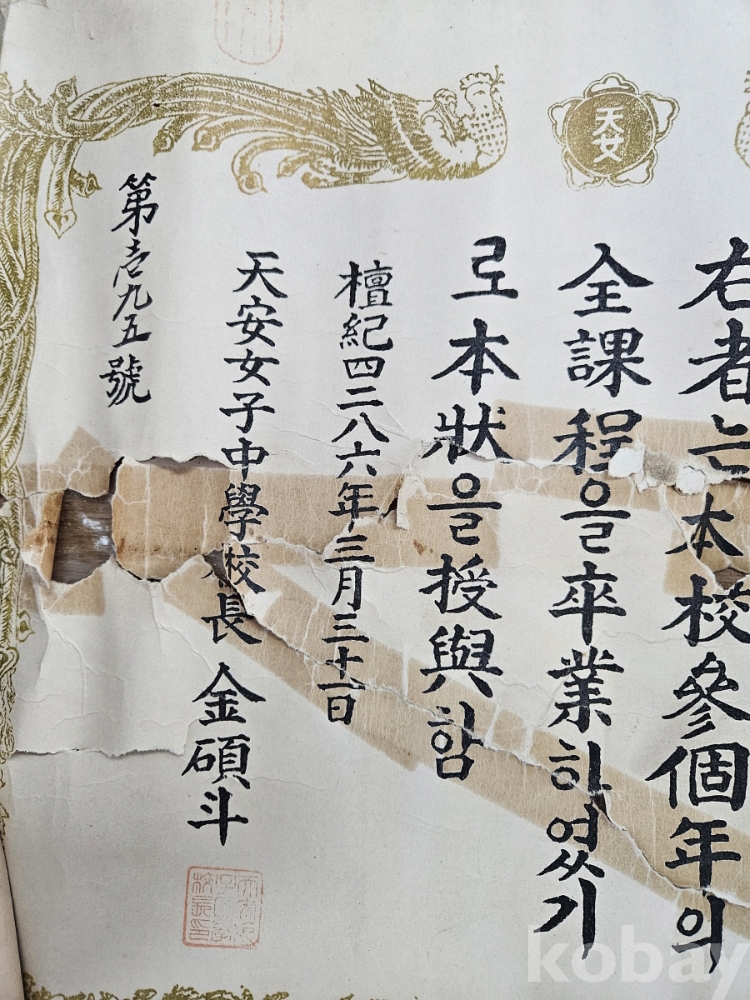 天女
右者는本校參個年의
全課程을卒業하였기
로本狀을授與함
檀紀四二八六年三月三十一日
天安女子中學校長 金碩斗
第壱九五號
kobay